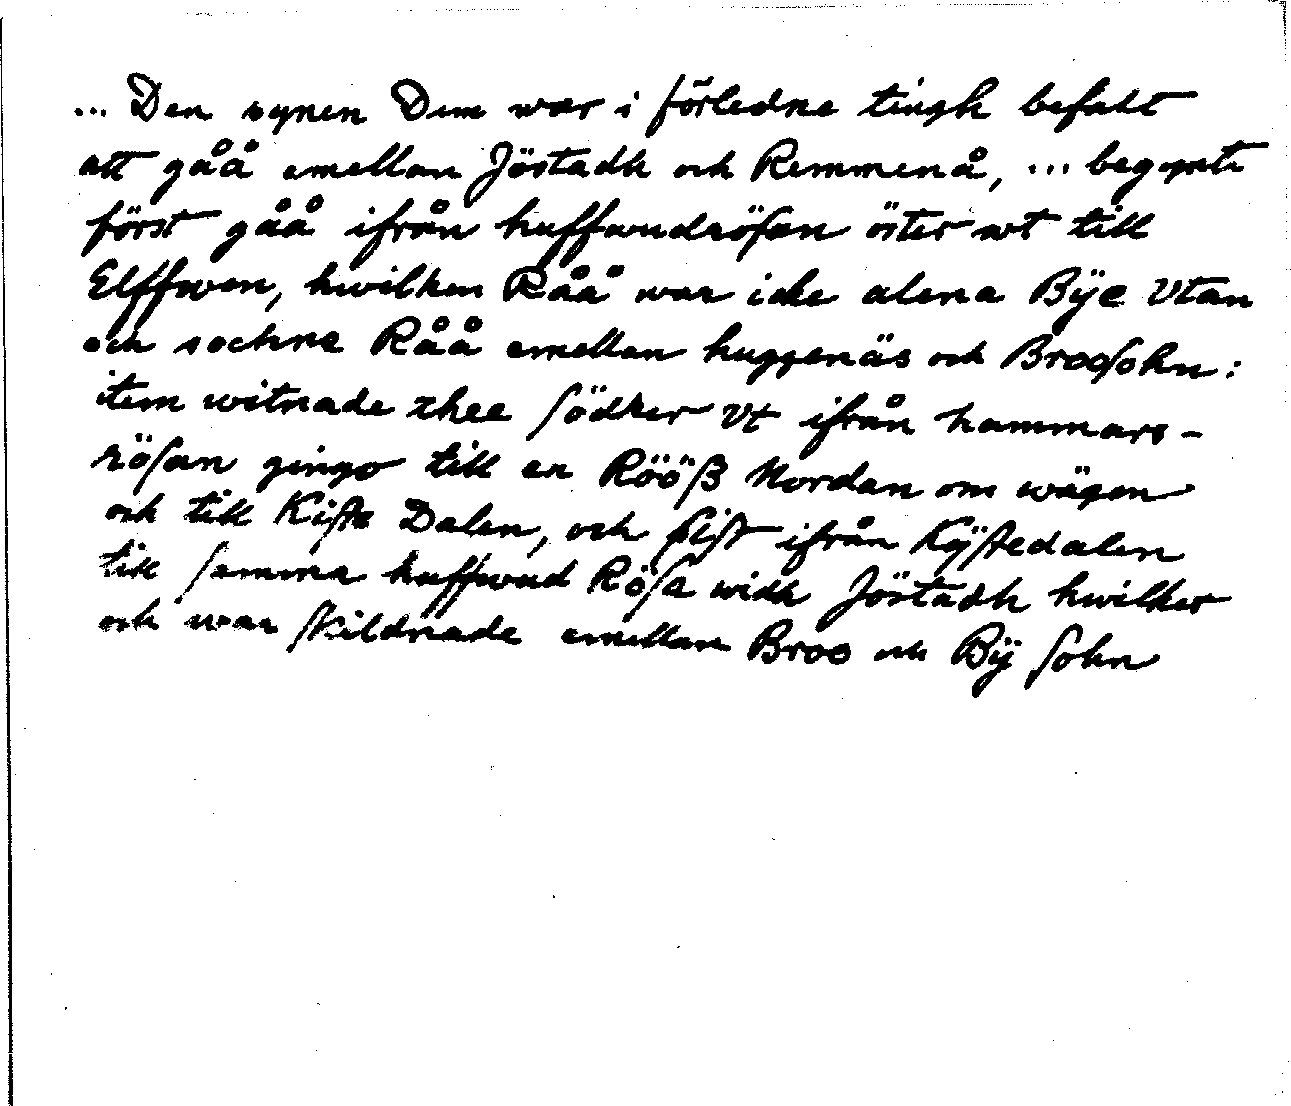 ... Den synen Dem war i förledne tingh befalt
att gåå emellan Jöstadh och Remmenå, ... begynte
först gåå ifrån huffwudröſan öster wt till
Elffwen, hwilken Råå war icke alena Bÿe Vtan
och sochne Råå emellan huggenäs och Brooſohn:
item witnade thee ſödher Vt ifrån hammars-
röſan gingo till en Rööß Nordan om wägen
och till Kiſte Dalen, och ſiſt ifrån Kÿſtedalen
till ſamma huffwud Röſa widh Jöstadh hwilket
och war ſkildnade emellan Broo och Bÿ ſohn